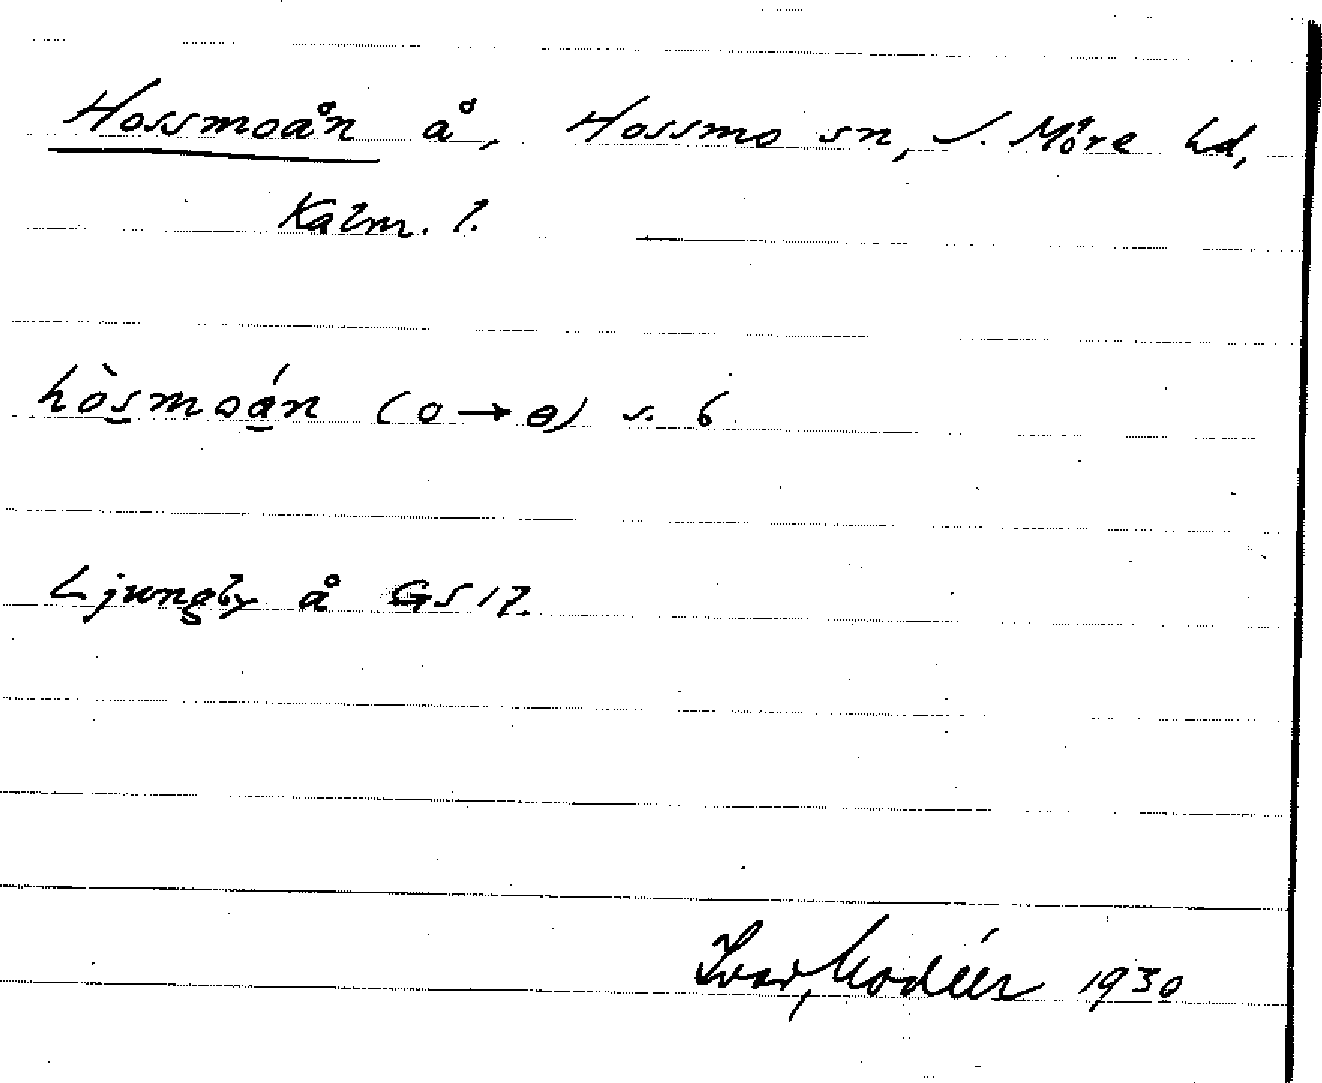 Hossmoån å, Hossmo sn, S. Möre hd,
Kalm. l.
hòsmoán (o→ɵ) s. 6
Ljungby å GS 17.
Ivar Modéer 1930